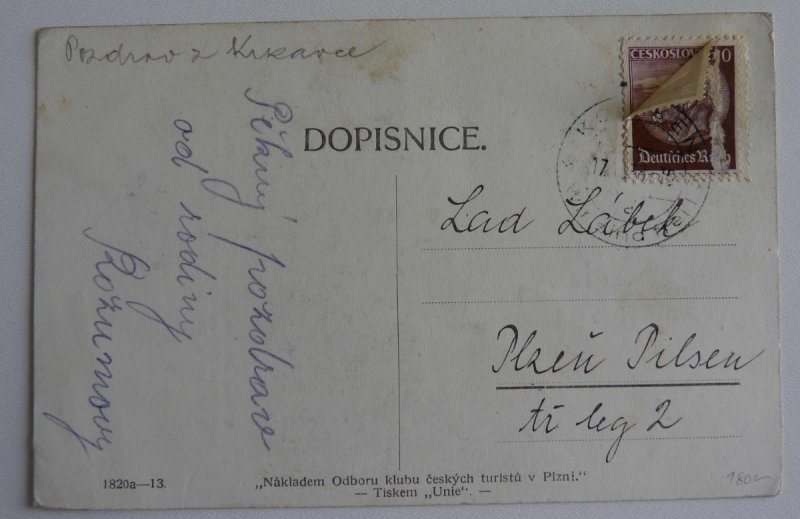 Pozdrav z Krkavce
Pěkný pozdrav
od rodiny
Rožumovy
DOPISNICE.
ČESKOSLOV
10
Deutsches Reich
17
Lad Lábek
Plzeň Pilsen
tř leg 2
1820a—13.
„Nákladem Odboru klubu českých turistů v Plzni."
— Tiskem „Unie". —
180,-